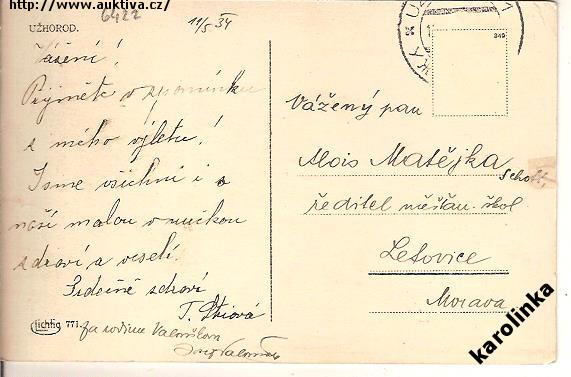 http://www.auktiva.cz/
6422
UŽHOROD.
11/5 34
349
Vážení!
Přijměte vzpomínku
z mého výletu!
Jsme všichni i s
naší malou vnučkou
zdraví a veselí.
Srdečně zdraví
Vážený pan
Alois Matějka
ředitel měšťan. škol
Letovice
Morava
lichtig 771.
Za rodinu
karolinka